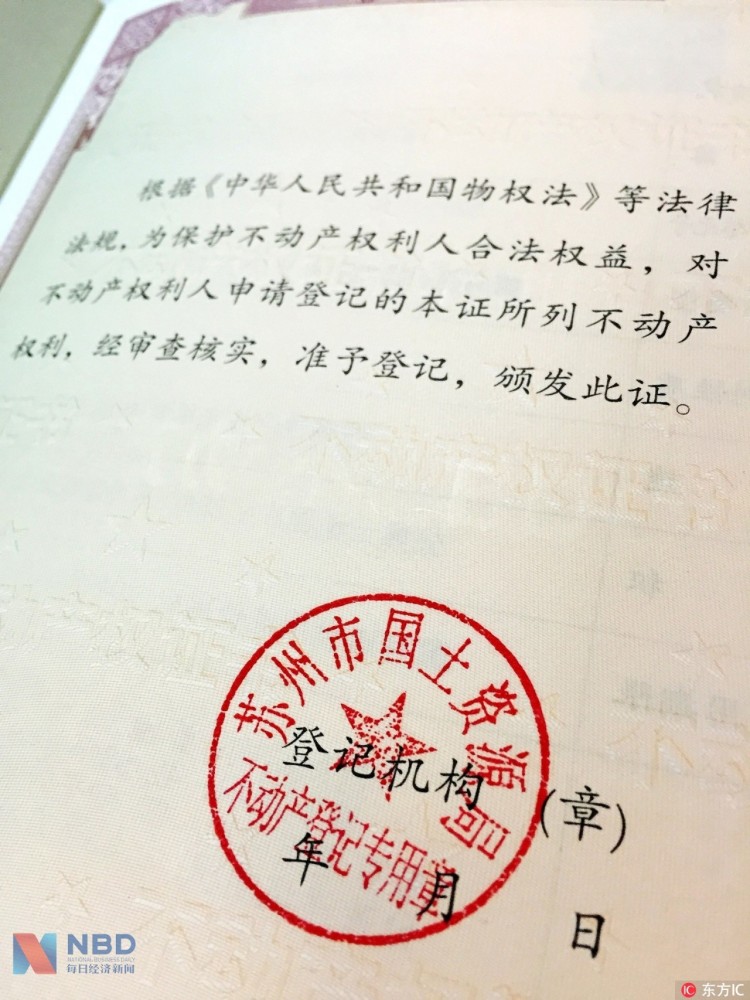 根据《中华人民共和国物权法》等法律
法规，为保护不动产权利人合法权益，对
不动产权利人申请登记的本证所列不动产
权利，经审查核实，准予登记，颁发此证。
苏州市国土资源局
登记机构 (章)
不动产登记专用章
年 月 日
NBD
NATIONAL BUSINESS DAILY
每日经济新闻
IC 东方IC